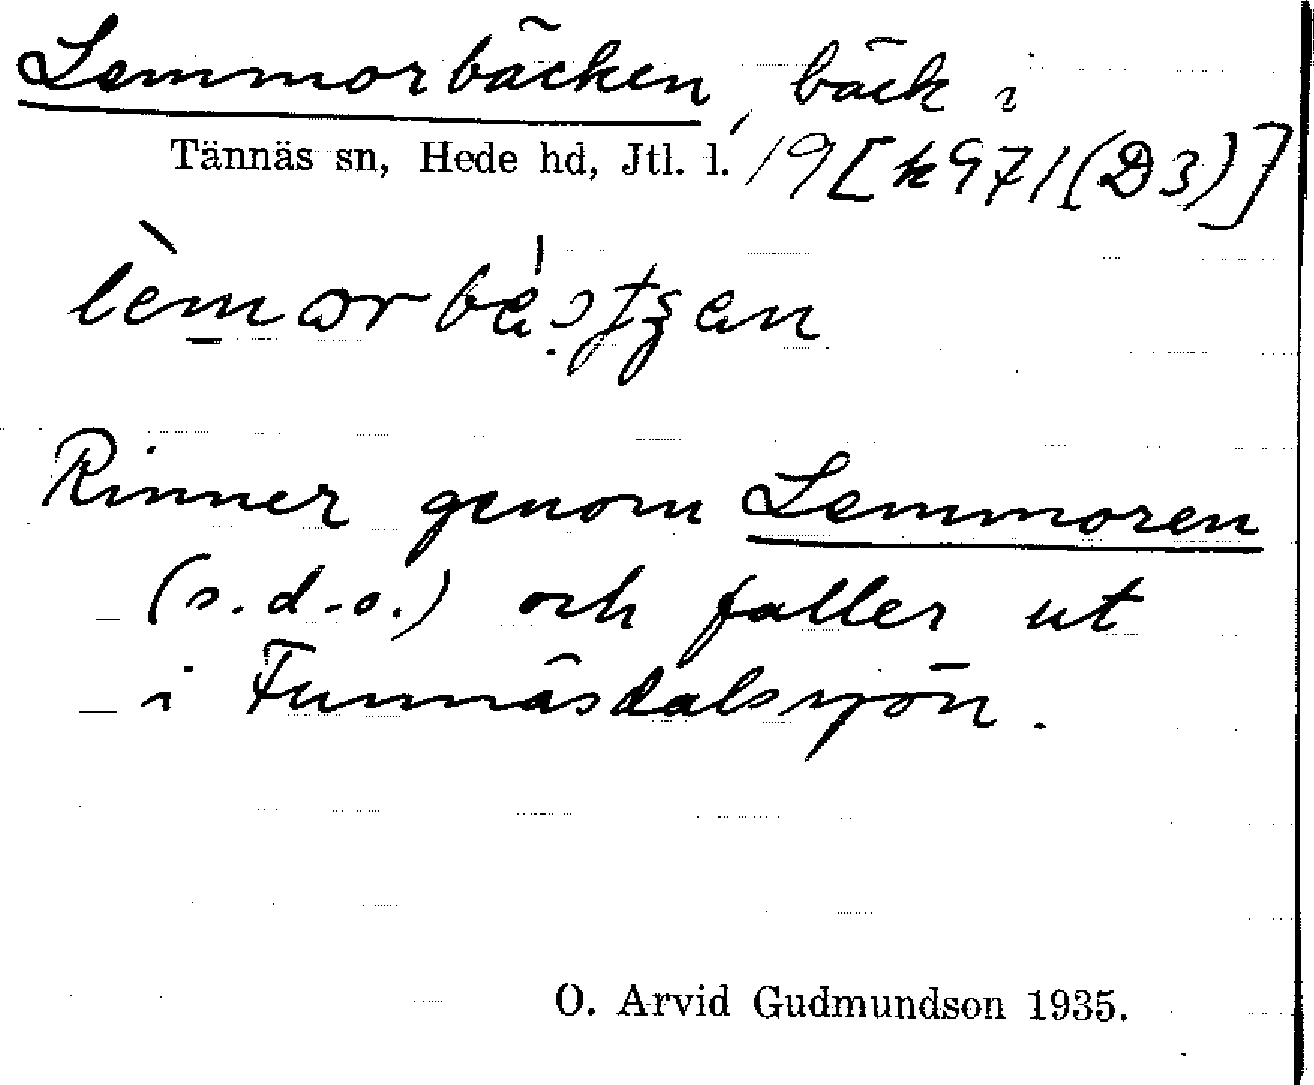 Lemmorbäcken, bäck i
Tännäs sn, Hede hd, Jtl. l. 19[k971(D3)]
Rinner genom Lemmoren
(s.d.o.) och faller ut
i Funnäsdalssjön.
O. Arvid Gudmundson 1935.